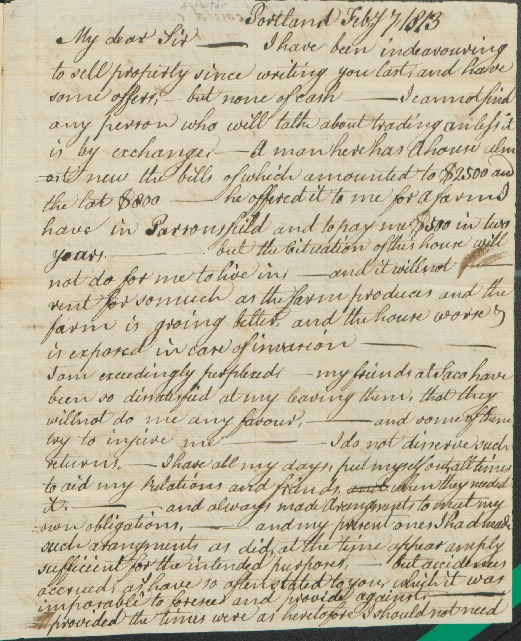 A Porter
Portland Feby 7 1813
My dear Sir — I have been indeavouring
to sell property since writing you last, and have
some offers, — but none of cash — I cannot find
any person who will talk about trading unless it
is by exchange. — A man here has a house alm
ost new the bills of which amounted to $2500 and
the lot $800 — he offered it to me for a farm I
have in Parsonsfield and to pay me $500 in two
years. — but the Cituation of this house will
not do for me to live in, — and it will not
rent for so much as the farm produces and the
farm is groing better, and the house worse &
is exposed in case of invasion — —
I am exceedingly perplexed — my friends at Saco have
been so dissatisfied at my leaving them, that they
will not do me any favour, — and some of them
try to injure me — I do not disserve such
returns. — I have all my days, put myself out all times
to aid my Relations and friends, when they needed
it. — and always made arangments to meet my
own obligations. — and my present ones I had made
such arangments as did, at the time appear amply
sufficient for the intended purposes, — but accidences
accrued as I have so often stated to you, which it was
imposable to foresee and provide against. —
provided the times were as heretofore I should not need